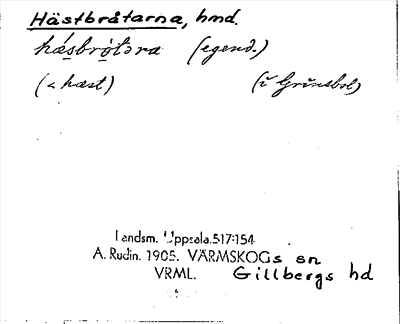 Hästbråtarna, hmd.
hásbrǫ́tǝra (egend.)
(< hæst) (i Grinsbol)
Landsm. Uppsala.517:154
A. Rudin. 1905. VÄRMSKOGs sn
VRML. Gillbergs hd